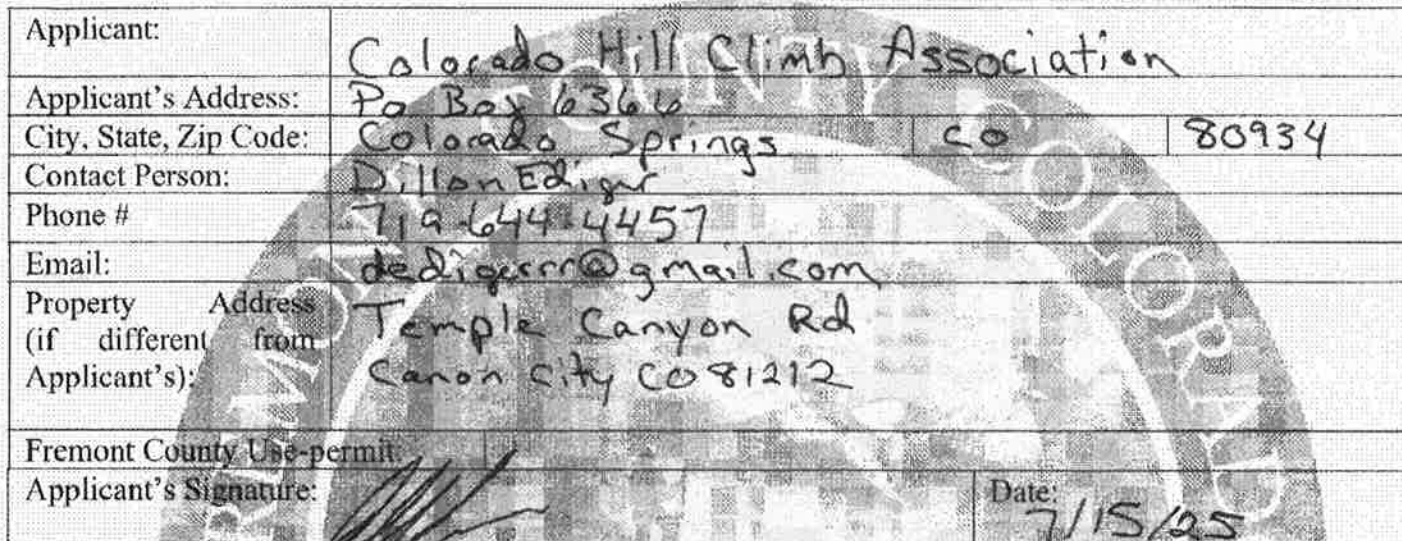 Applicant: Colorado Hill Climb Association
Applicant's Address: Po Box 6366
City, State, Zip Code: Colorado Springs CO 80934
Contact Person: Dillon Ediger
Phone # 719-644-4457
Email: dedigerrr@gmail.com
Property Address Temple Canyon Rd
(if different from
Applicant's): Canon City CO 81212
Fremont County Use-permit:
Applicant's Signature: Date: 7/15/25
COUNTY COLORAD
REMONT